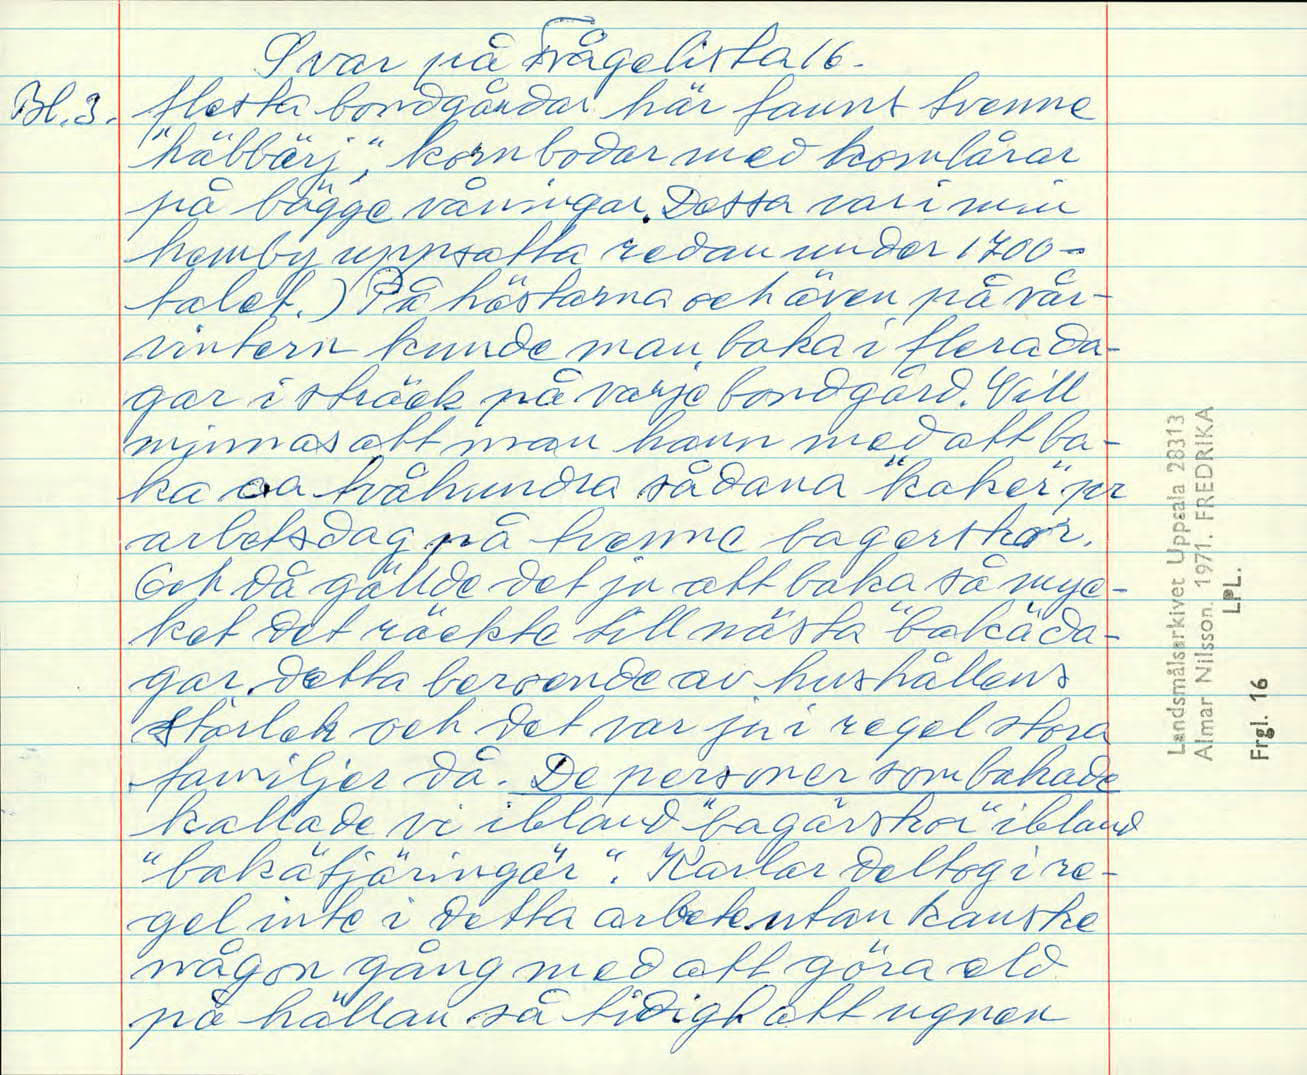 Svar på Frågelista 16.
Bl. 3. flesta bondgårdar här fanns tvenne
"häbbärj", kornbodar med kornlårar
på bägge våningar. Dessa var i min
hemby uppsatta redan under 1700-
talet.) På höstarna och även på vår-
vintern kunde man baka i flera da-
gar i sträck på varje bondgård. Vill
minnas att man hann med att ba-
ka ca tvåhundra sådana "kaker" pr
arbetsdag på tvenne bagerskor.
Och då gällde det ju att baka så myc-
ket det räckte till nästa "bakäda-
gar, detta beroende av hushållens
storlek och det var ju i regel stora
familjer då. De personer som bakade
kallade vi ibland "bagärskor" ibland
"bakätjäringär". Karlar deltog i re-
gel inte i detta arbete utan kanske
någon gång med att göra eld
på hällan så tidigt att ugnen
Landsmålsarkivet Uppsala 28313
Almar Nilsson. 1971. FREDRIKA
LPL.
Frgl. 16